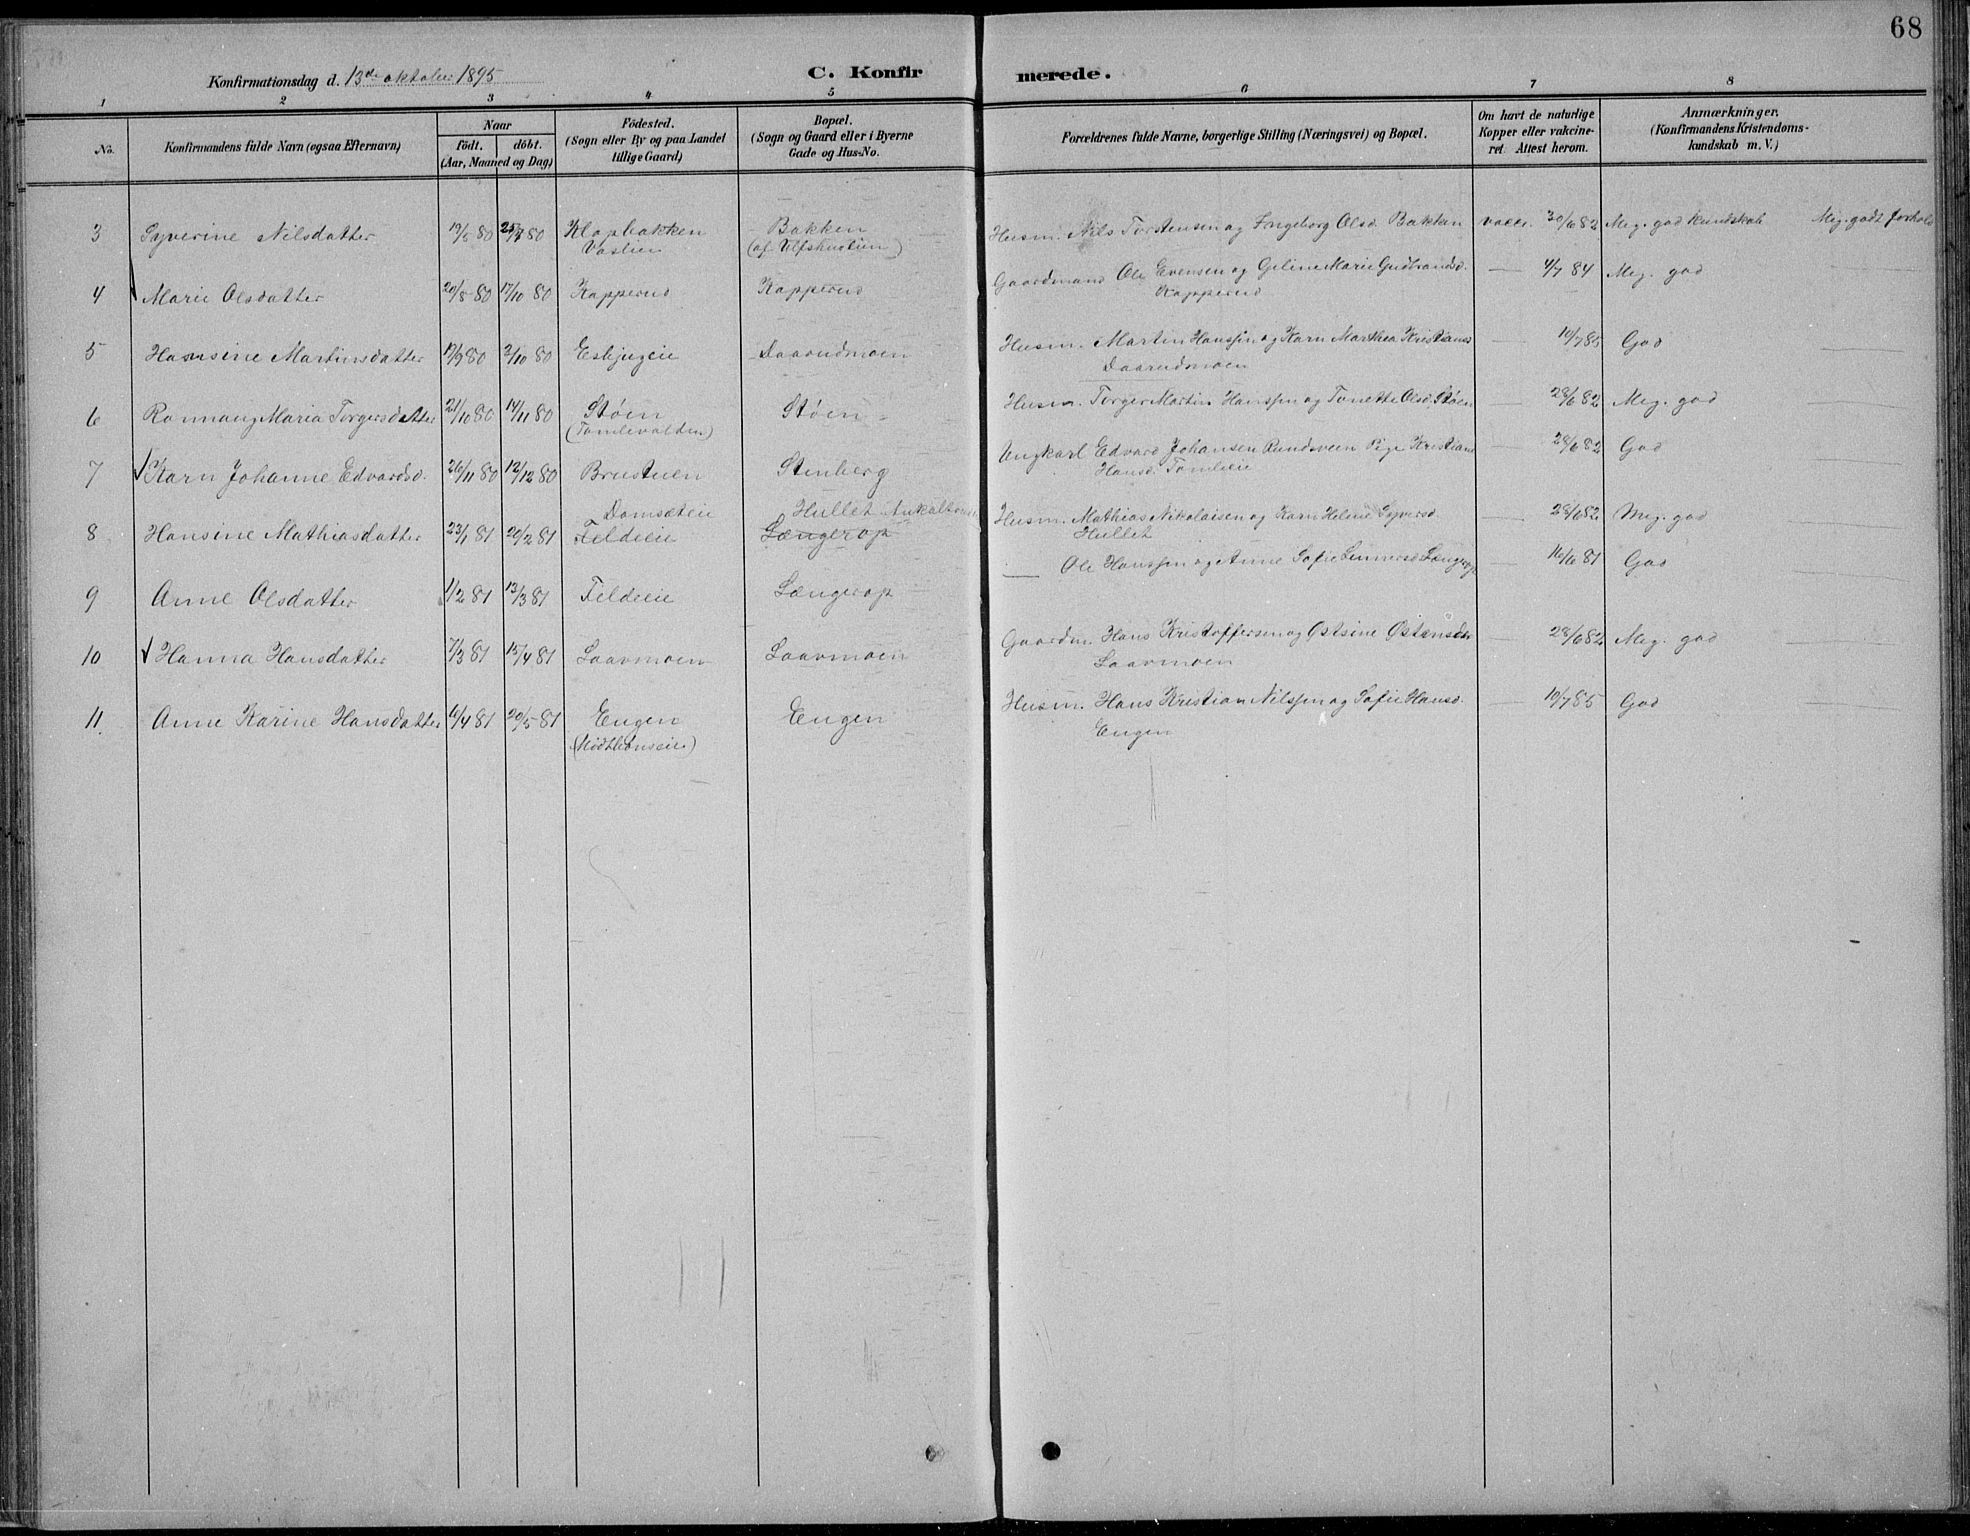 68
Konfirmationsdag d. 13de oktober 1895
C. Konfirmerede.
1 2 3 4 5 6 7 8
No.
Konfirmandens fulde Navn (ogsaa Efternavn)
Naar
födt. döbt.
(Aar, Maaned og Dag)
Födested.
(Sogn eller By og paa Landet
tillige Gaard)
Bopæl.
(Sogn og Gaard eller i Byerne
Gade og Hus-No.
Forældrenes fulde Navne, borgerlige Stilling (Næringsvei) og Bopæl.
Om havt de naturlige
Kopper eller vakcine-
ret. Attest herom.
Anmærkninger.
(Konfirmandens Kristendoms-
kundskab m. V.)
3 Syverine Nilsdatter 19/5 80 80 Klopbakken Bakken Husm. Nils Torstensen og Ingeborg Olsd. Bakken vacc. 30/6 82 Meg. god kundskab Meg. godt forhold
Vaslien (af Ulfshuslien)
4 Marie Olsdatter 20/8 80 17/10 80 Kapperud Kapperud Gaardmand Ole Evensen og Geline Marie Gudbrandsd. — 4/7 84 Meg. god
Kapperud
5 Hansine Martinsdatter 80 2/10 80 Esbjugeie Daarudmoen Husm. Martin Hanssen og Karn Marthea Kristians — 10/7 85 God
Daarudmoen
6 Ronnaug Maria Torgersdatter 21/10 80 14/11 80 Støen Støen Husm. Torger Martin Hanssen og Tonette Olsd. Støen 28/6 82 Meg. god
(Tomlevolden)
7 Karn Johanne Edvardsd. 26/11 80 12/12 80 Brustuen Stenberg Ungkarl Edvard Johansen Rundsveen Pige Kristiane — 28/6 82 God
Hansd. Tomleeie
Domsæteie Hullet
8 Hansine Mathiasdatter 23/1 81 20/2 81 Feldeie Længerop Husm. Mathias Nikolaisen og Karn Helene Syversd. — 28/6 82 Meg. god
Hullet
9 Anne Olsdatter 1/2 81 13/3 81 Feldeie Længerop — Ole Hanssen og Anne Sofie — 16/6 81 God
10 Hanna Hansdatter 7/3 81 15/4 81 Laavmoen Laavmoen Gaardm. Hans Kristoffersen og Østsine Østensdr — 28/6 82 Meg. god
Laavmoen
11. Anne Karine Hansdatter 4 81 20/5 81 Engen Engen Husm. Hans Kristian Nilssen og Sofie Hansd. — 10/7 85 God
Engen